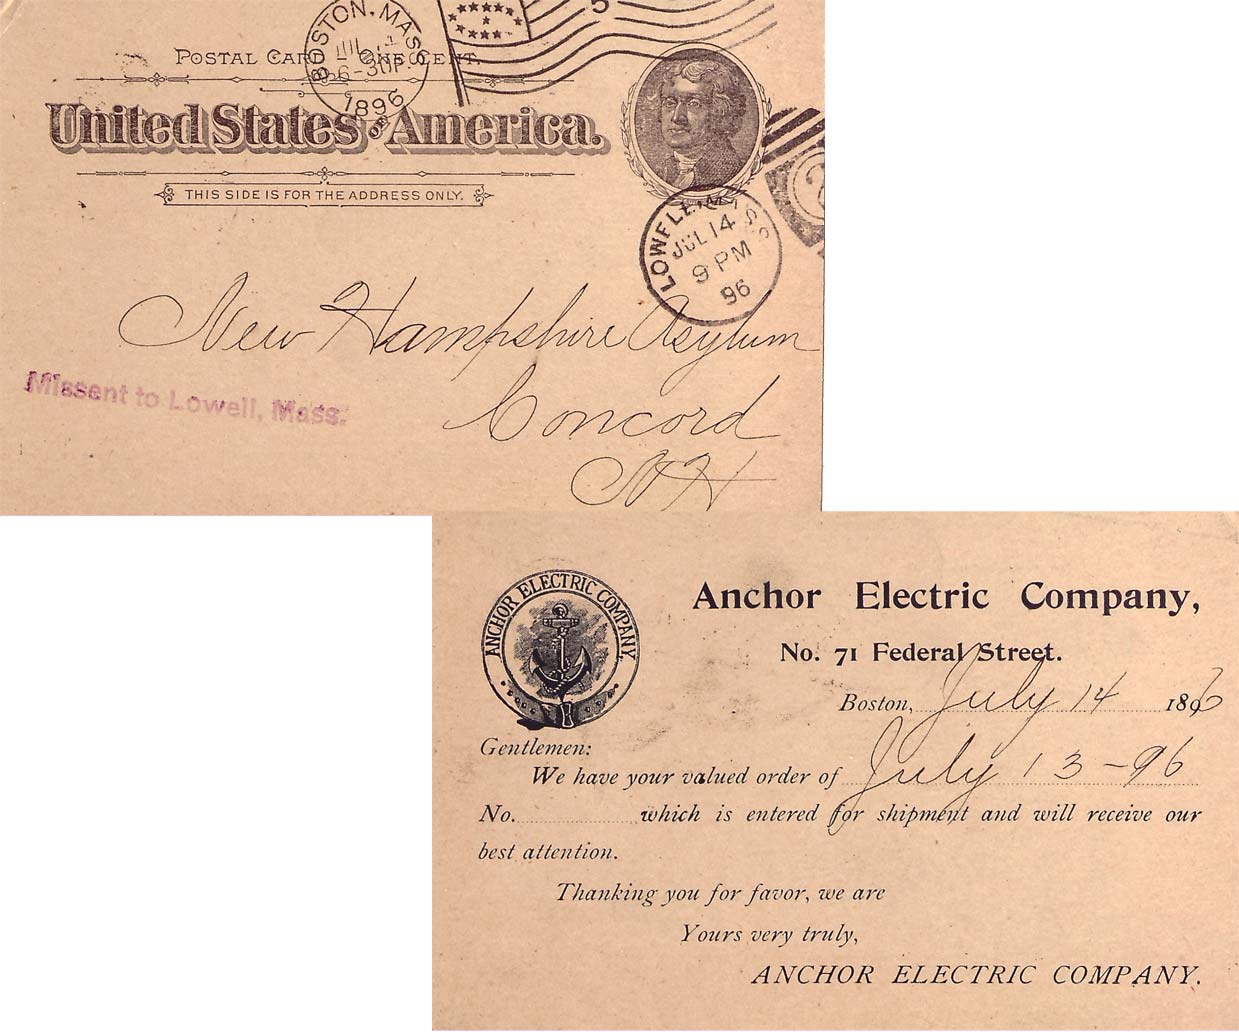 BOSTON, MASS.
1896
5
POSTAL CARD – ONE CENT.
United States of America.
THIS SIDE IS FOR THE ADDRESS ONLY.
LOWELL, MASS.
JUL 14
9 PM
96
2
New Hampshire Asylum
Missent to Lowell, Mass.
Concord
NH
ANCHOR ELECTRIC COMPANY.
Anchor Electric Company,
No. 71 Federal Street.
Boston, July 14 1896
Gentlemen:
We have your valued order of July 13-96
No. which is entered for shipment and will receive our
best attention.
Thanking you for favor, we are
Yours very truly,
ANCHOR ELECTRIC COMPANY.